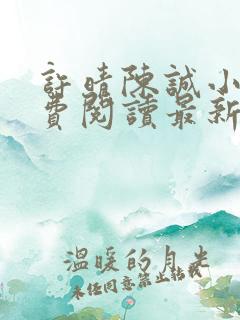 許晴陳誠小
費閱讀最新
溫暖的月光
未经同意禁止転載